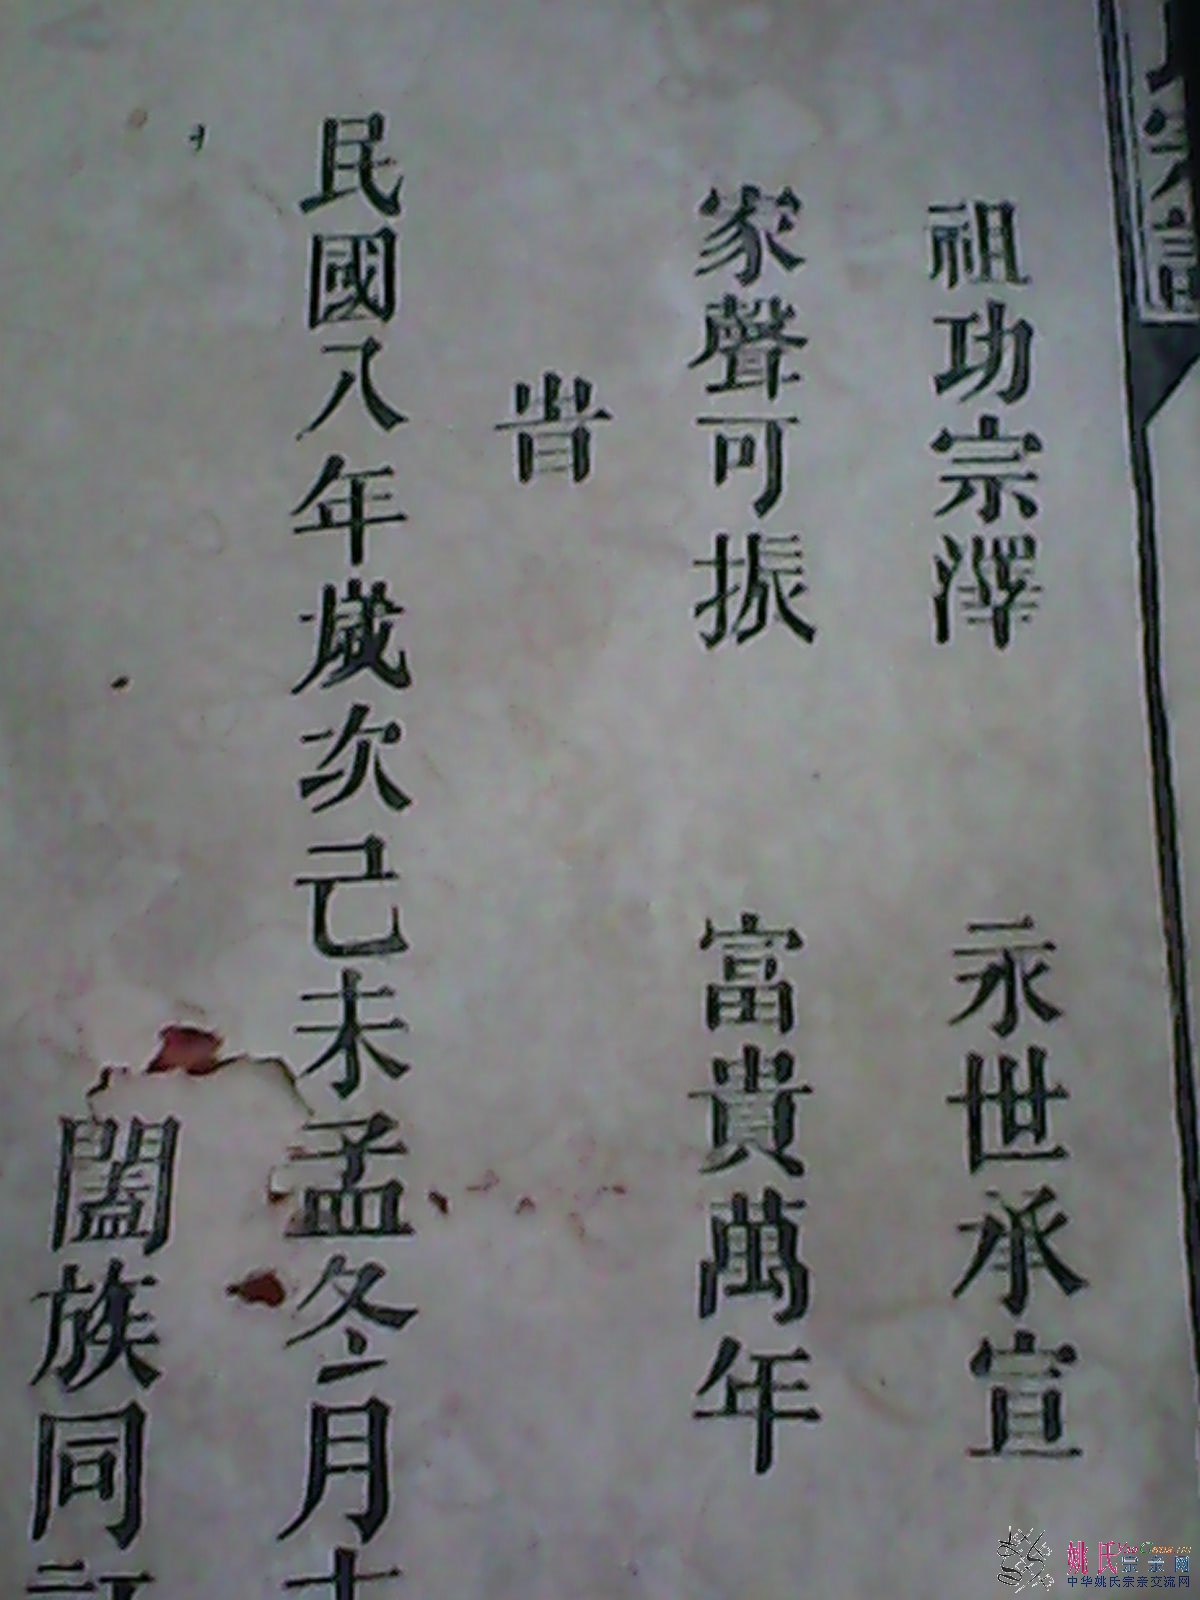 祖功宗澤　永世承宣
家聲可振　富貴萬年
旹
民國八年歲次己未孟冬月
闔族同訂
姚氏宗亲网
中华姚氏宗亲交流网